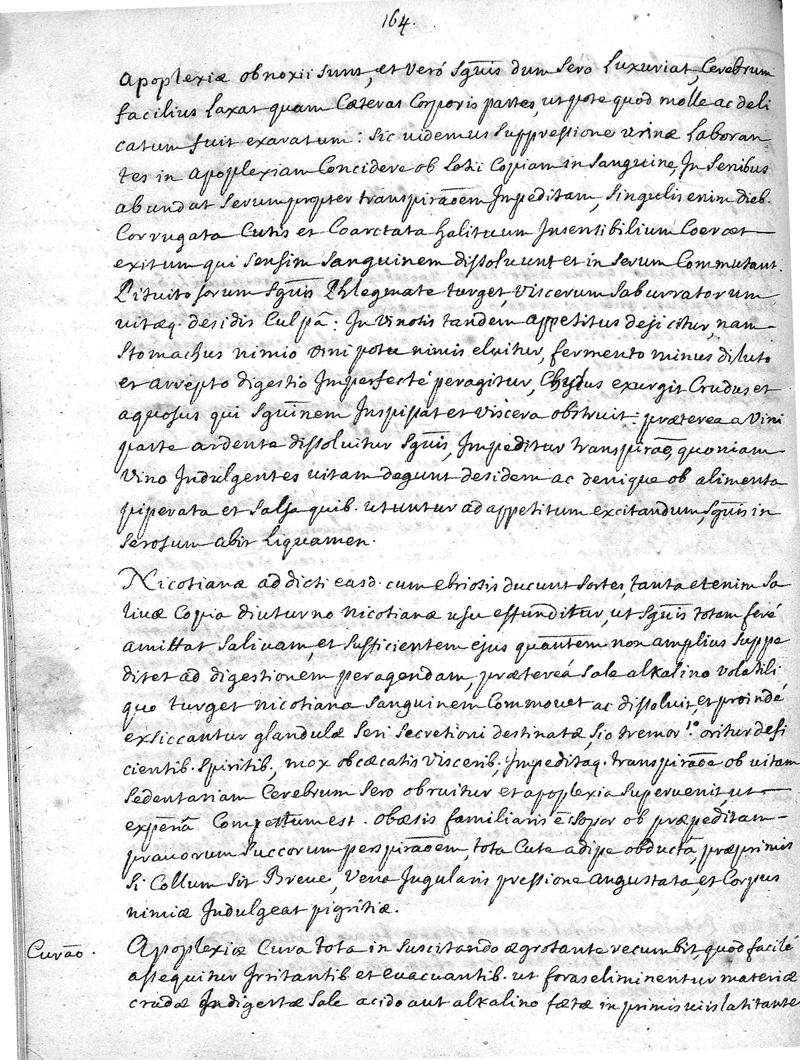 164.
Apoplexiæ obnoxii sunt, et veró sguis dum sero luxuriat, Cerebrum
facilius laxat quam Cæteras Corporis partes, ut pote quod molle ac deli
catum fuit exaratum: sic videmus suppressione urinæ laboran-
tes in apoplexiam Concidere ob lotii Copiam in sanguine, In senibus
abundat serum propter transpiraõem Impeditam, singulis enim dieb.
Corrugata Cutis et Coarctata halituum Insentibilium Coercet
exitum qui sensim sanguinem dissoluunt et in serum Commutant.
Pituitosorum sguis Phlegmate turget, viscerum saburratorum
vitæq. desidis Culpâ: In vinosis tandem appetitus dejicitur, nam
stomachus nimio vini potu nimis eluitur, fermento minus diluto
et arrepto digestio Imperfecté peragitur, Chylus exurgit Crudus et
aquosus qui sguinem Inspissat et viscera obstruit: præterea a vini
parte ardente dissoluitur sguis, Impeditur transpiraõ, quoniam
vino Indulgentes vitam degunt desidem ac denique ob alimenta
piperata et salsa quib. utuntur ad appetitum excitandum, sguis in
serosum abit liquamen.
Nicotianæ addicti easd. cum ebriosis ducunt sortes, tanta etenim sa
livæ Copia diuturno nicotianæ usu effunditur, ut sguis totam feré
amittat salivam, et sufficientem ejus quantem non amplius suppe
ditet ad digestionem peragendam, prætereá sale alkalino volatili
quo turget nicotiana sanguinem Commovet ac dissoluit, et proindé
exsiccantur glandulæ seri secretioni destinatæ, sic tremor 1.º oritur defi
cientib. spiritib., mox obcæcatis viscerib., Impeditaq. transpiraõe ob vitam
sedentariam Cerebrum sero obruitur et apoplexia supervenit, ut
expenâ Compertum est. obæsis familiaris ẽ sopor ob præpeditam-
pravorum succorum perspiraõem, tota Cute adipe obductâ, præprimis
si Collum sit Breve, vena Jugularis pressione angustata, et Corpus
nimiæ Indulgeat pigritiæ.
Curaõ. Apoplexiæ Cura tota in suscitando ægrotante recumbit, quod facilé
assequitur Irritantib. et evacuantib. ut foras eliminentur materiæ
crudæ Indigestæ sale acido aut alkalino fætæ in primis viis latitantes